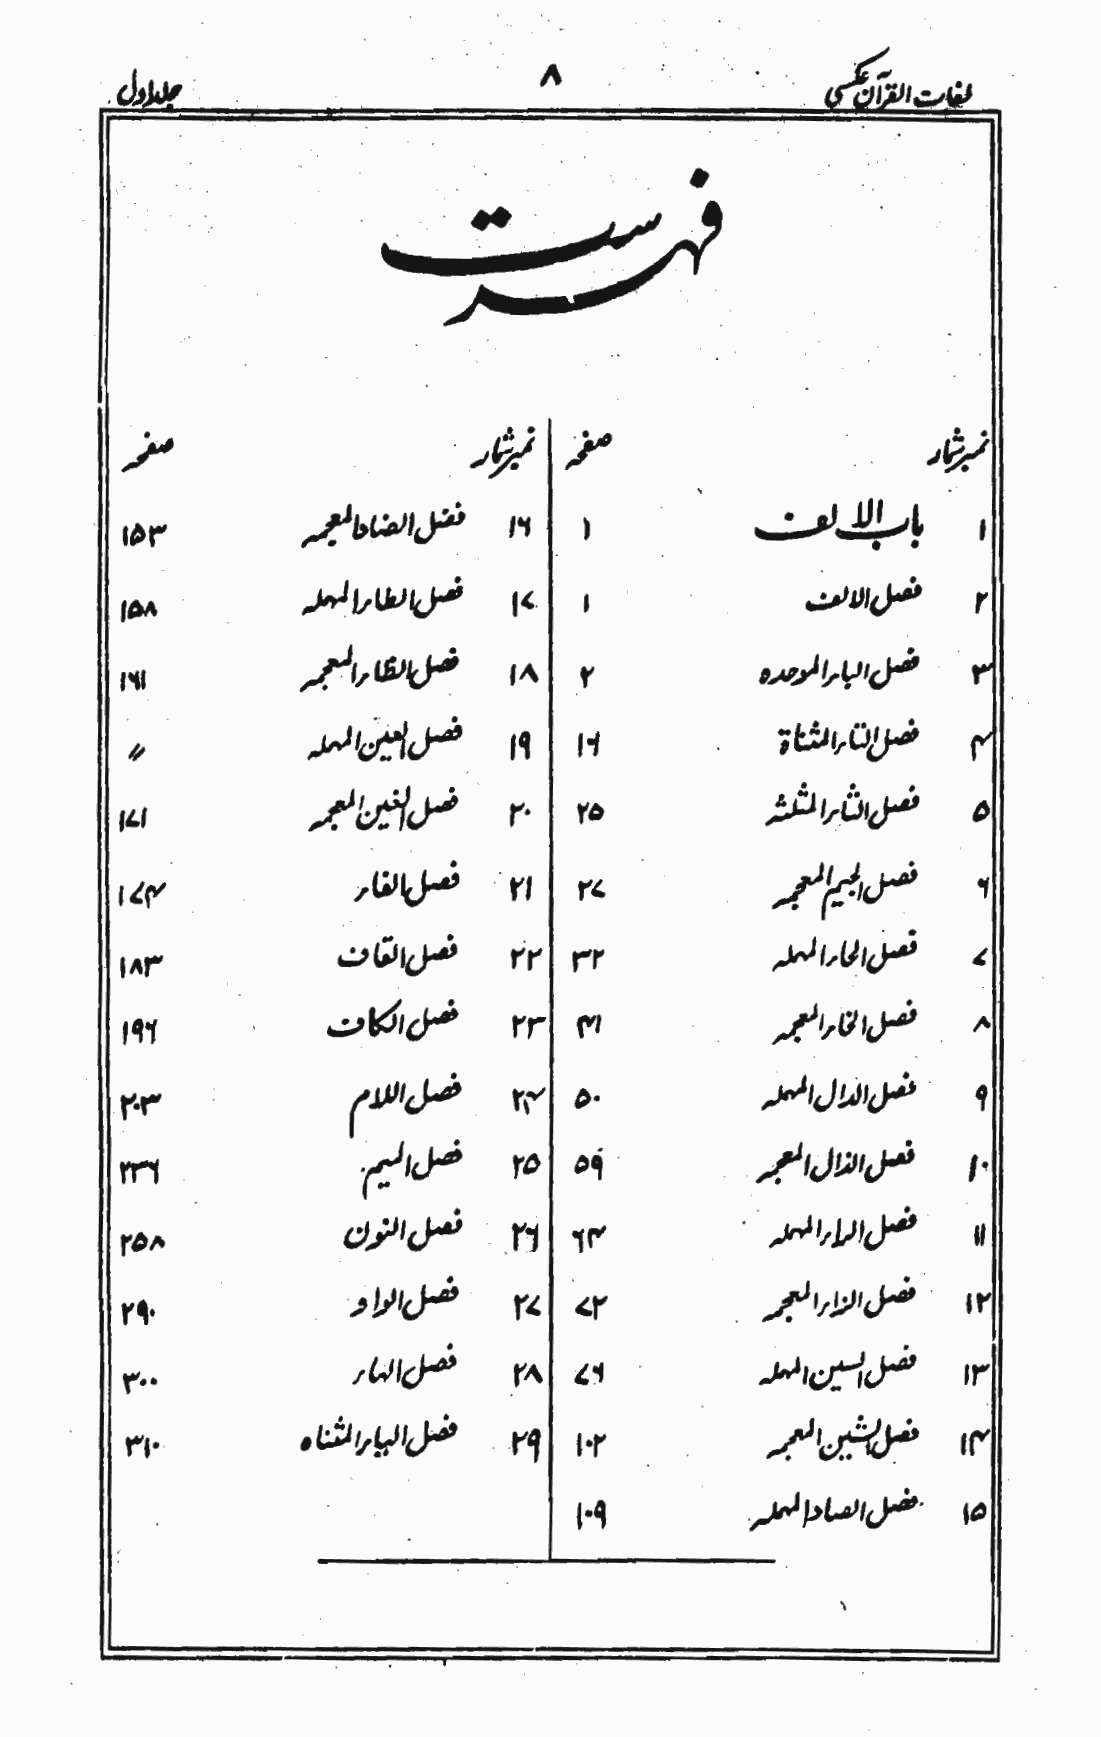 لغات القرآن عکسی ۸ جلد اول
فہرست
نمبر شمار صفحہ
۱ باب الالف ۱
۲ فصل الالف ۱
۳ فصل الباء الموحدہ ۲
۴ فصل التاء المثناة ۱۶
۵ فصل الثاء المثلثہ ۲۵
۶ فصل الجیم المعجمہ ۲۷
۷ فصل الحاء المہملہ ۳۲
۸ فصل الخاء المعجمہ ۴۱
۹ فصل الدال المہملہ ۵۰
۱۰ فصل الذال المعجمہ ۵۹
۱۱ فصل الراء المہملہ ۶۴
۱۲ فصل الزاء المعجمہ ۷۲
۱۳ فصل السین المہملہ ۷۶
۱۴ فصل الشین المعجمہ ۱۰۲
۱۵ فصل الصاد المہملہ ۱۰۹
نمبر شمار صفحہ
۱۶ فصل الضاد المعجمہ ۱۵۳
۱۷ فصل الطاء المہملہ ۱۵۸
۱۸ فصل الظاء المعجمہ ۱۶۱
۱۹ فصل العین المہملہ //
۲۰ فصل الغین المعجمہ ۱۷۱
۲۱ فصل الفاء ۱۷۴
۲۲ فصل القاف ۱۸۳
۲۳ فصل الکاف ۱۹۶
۲۴ فصل اللام ۲۰۳
۲۵ فصل المیم ۲۳۶
۲۶ فصل النون ۲۵۸
۲۷ فصل الواو ۲۹۰
۲۸ فصل الہاء ۳۰۰
۲۹ فصل الیاء المثناہ ۳۱۰